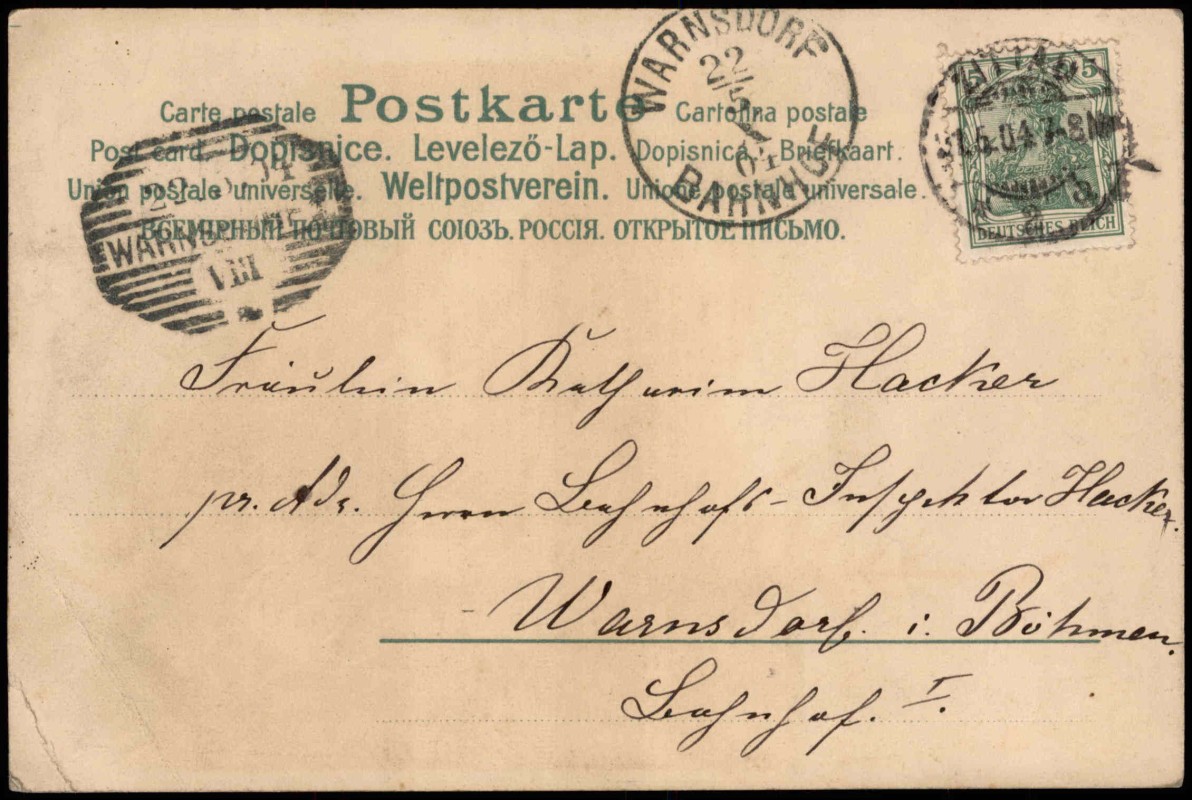 Carte postale Postkarte Cartolina postale
Post card. Dopisnice. Levelező-Lap. Dopisnica. Briefkaart.
Union postale universelle. Weltpostverein. Unione postale universale.
ВСЕМІРНЫЙ ПОЧТОВЫЙ СОЮЗЪ. РОССІЯ. ОТКРЫТОЕ ПИСЬМО.
WARNSDORF
22/5
04
BAHNHOF
5 5
ZITTAU
.5.04. 7-8N.
DEUTSCHES REICH
22. 5. 04
WARNSDORF
VIII
Fräulein Katharina Hacker
pr. Adr. Herrn Bahnhofs-Inspektor Hacker.
Warnsdorf i. Böhmen.
Bahnhof. I.